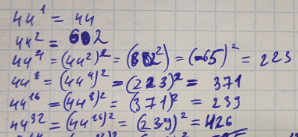 44¹ = 44
44² = 602
44⁴ = (44²)² = (602)² = (-65)² = 223
44⁸ = (44⁴)² = (223)² = 371
44¹⁶ = (44⁸)² = (371)² = 239
44³² = (44¹⁶)² = (239)² = 426